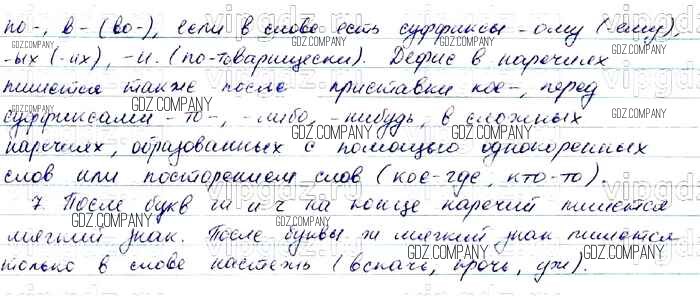 по-, в- (во-), если в слове есть суффиксы -ому (-ему),
-ых (-их), -и. (по-товарищески). Дефис в наречиях
пишется также после приставки кое-, перед
суффиксами -то-, -либо, -нибудь, в сложных
наречиях, образованных с помощью однокоренных
слов или повторением слов (кое-где, кто-то).
7. После букв ш и ч на конце наречий пишется
мягкий знак. После буквы ж мягкий знак пишется
только в слове настежь (вскачь, прочь, уж).
GDZ.COMPANY
vipgdz.ru